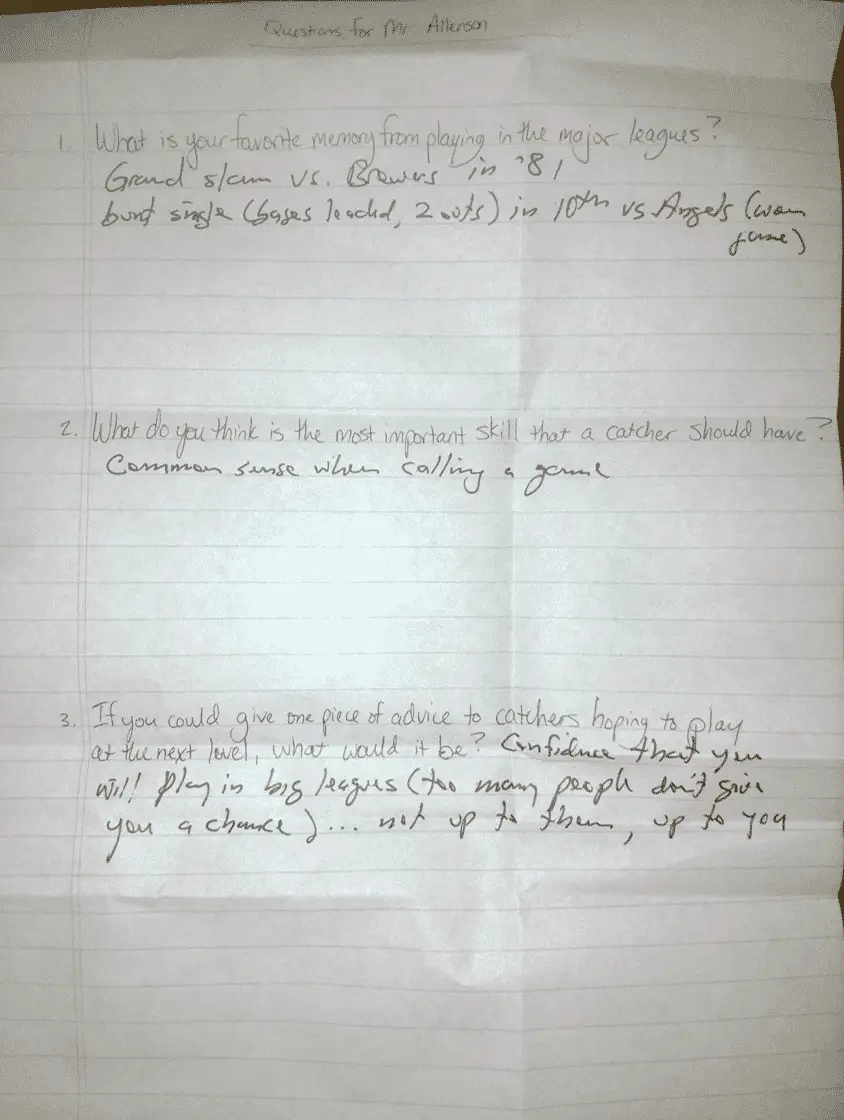 Questions for Mr. Allenson
1. What is your favorite memory from playing in the major leagues?
Grand slam vs. Brewers in '81
bunt single (bases loaded, 2 outs) in 10th vs Angels (won
game)
2. What do you think is the most important skill that a catcher should have?
Common sense when calling a game
3. If you could give one piece of advice to catchers hoping to play
at the next level, what would it be? Confidence that you
will play in big leagues (too many people don't give
you a chance)... not up to them, up to you